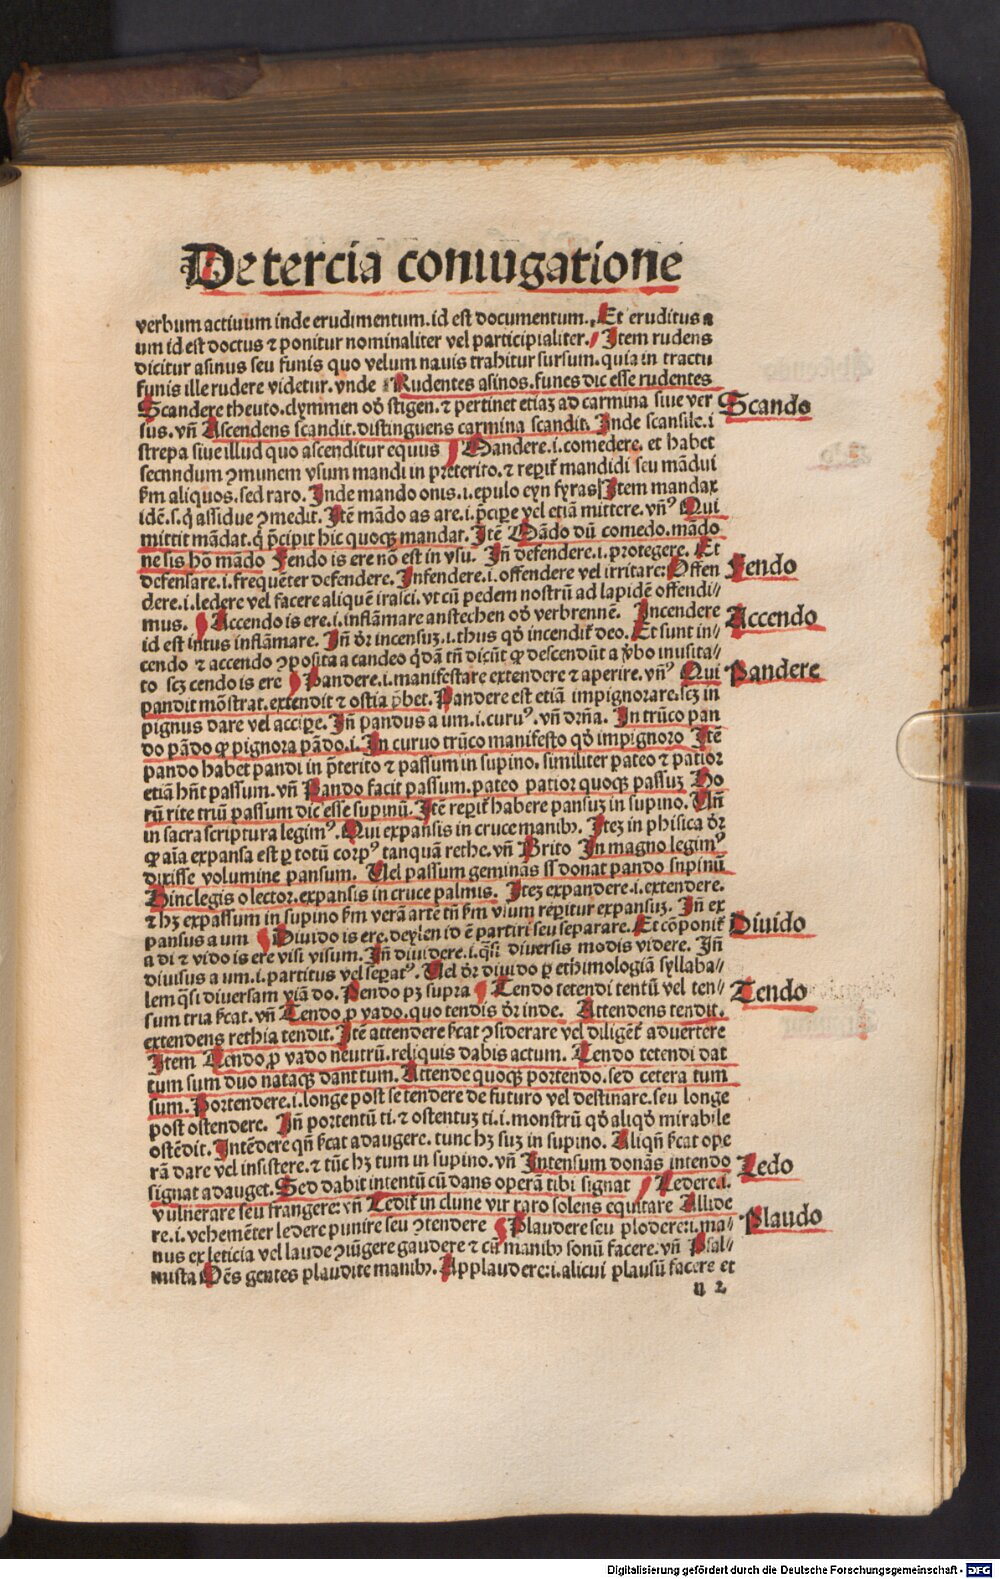 De tercia coniugatione
verbum actiuum inde erudimentum. id est documentum. Et eruditus a
um id est doctus ⁊ ponitur nominaliter vel participialiter. Item rudens
dicitur asinus seu funis quo velum nauis trahitur sursum. quia in tractu
funis ille rudere videtur. vnde Rudentes asinos. funes dic esse rudentes
Scandere theuto. clymmen od̕ stigen. ⁊ pertinet etiaz ad carmina siue ver
Scando
sus. vn̄ Ascendens scandit. distinguens carmina scandit. Inde scansile. i
strepa siue illud quo ascenditur equus Mandere. i. comedere. et habet
secnndum ꝯmunem vsum mandi in preterito. ⁊ reperit̕ mandidi seu mādui
ẜm aliquos. sed raro. Inde mando onis. i. epulo eyn fyras Item mandax
idē. s. q̇ assidue ꝯmedit. Itē mādo as are. i. p̄cipe vel etiā mittere. vnꝰ Qui
mittit mādat. q̇ p̄cipit hic quoqꝫ mandat. Itē Mādo dū comedo. mādo
ne sis hō mādo Fendo is ere nō est in vsu. In̄ defendere. i. protegere. Et
defensare. i. frequēter defendere. Infendere. i. offendere vel irritare: Offen
Fendo
dere. i. ledere vel facere aliquē irasci. vt cū pedem nostrū ad lapidē offendi⸗
mus. Accendo is ere. i. inflāmare anstechen od̕ verbrennē. Incendere
Accendo
id est intus inflāmare. In̄ dr̄ incensuꝫ. i. thus qd̕ incendit̕ deo. Et sunt in⸗
cendo ⁊ accendo ꝯposita a candeo q̇dā tn̄ dicūt ꝙ descendūt a v̓bo inusita⸗
to scꝫ cendo is ere Pandere. i. manifestare extendere ⁊ aperire. vnꝰ Qui
Pandere
pandit mōstrat. extendit ⁊ ostia p̄bet. Pandere est etiā impignorare. scꝫ in
pignus dare vel accipe. In̄ pandus a um. i. curuꝰ. vn̄ dr̄na. In trūco pan
do pādo ꝙ pignora pādo. i. In curuo trūco manifesto qd̕ impignoro Itē
pando habet pandi in p̄terito ⁊ passum in supino. similiter pateo ⁊ patior
etiā hn̄t passum. vn̄ Pando facit passum. pateo patior quoqꝫ passuꝫ Ho
rū rite triū passum dic esse supinū. Itē reperit̕ habere pansuꝫ in supino. Vn̄
in sacra scriptura legimꝰ. Qui expansis in cruce manibꝫ. Iteꝫ in phisica dr̄
ꝙ aīa expansa est ꝑ totū corpꝰ tanquā rethe. vn̄ Brito In magno legimꝰ
dixisse volumine pansum. Uel passum geminās ss donat pando snpinū
Hinc legis o lector. expansis in cruce palmis. Iteꝫ expandere. i. extendere.
⁊ hꝫ expassum in supino ẜm verā arte tn̄ ẜm vsum reperitur expansuꝫ. In̄ ex
pansus a um Diuido is ere. deylen id ē partiri seu separare. Et cōponit̕
Diuido
a di ⁊ vido is ere visi visum. In̄ diuidere. i. q̄si diuersis modis videre. In̄
diuisus a um. i. partitus vel seꝑatꝰ. Uel dr̄ diuido ꝑ ethimologiā syllaba⸗
lem q̄si diuersam viā do. Pendo pꝫ supra Tendo tetendi tentū vel ten⸗
Tendo
sum tria ẜcat. vn̄ Tendo ꝓ vado. quo tendis dr̄ inde. Attendens tendit.
extendens rethia tendit. Itē attendere ẜcat ꝯsiderare vel diligēt̕ aduertere
Item Tendo ꝓ vado neutrū. reliquis dabis actum. Tendo tetendi dat
tum sum duo nataqꝫ dant tum. Attende quoqꝫ portendo. sed cetera tum
sum. Portendere. i. longe post se tendere de futuro vel destinare. seu longe
post ostendere. In̄ portentū ti. ⁊ ostentuꝫ ti. i. monstrū qd̕ aliqd̕ mirabile
ostēdit. Intēdere qn̄ ẜcat adaugere. tunc hꝫ suꝫ in supino. Aliqn̄ ẜcat ope
rā dare vel insistere. ⁊ tūc hꝫ tum in supino. vn̄ Intensum donās intendo
Ledo
signat adauget. Sed dabit intentū cū dans operā tibi signat Ledere. i.
vulnerare seu frangere: vn̄ Ledit̕ in clune vir raro solens equitare Allide
re. i. vehemēter ledere punire seu ꝯtendere Plaudere seu plodere: i. ma⸗
Plaudo
nus ex leticia vel laude ꝯiūgere gaudere ⁊ cū manibꝫ sonū facere. vn̄ Psal⸗
musta Om̄s gentes plaudite manibꝫ. Applaudere: i. alicui plausū facere et
n 2
Digitalisierung gefördert durch die Deutsche Forschungsgemeinschaft - DFG